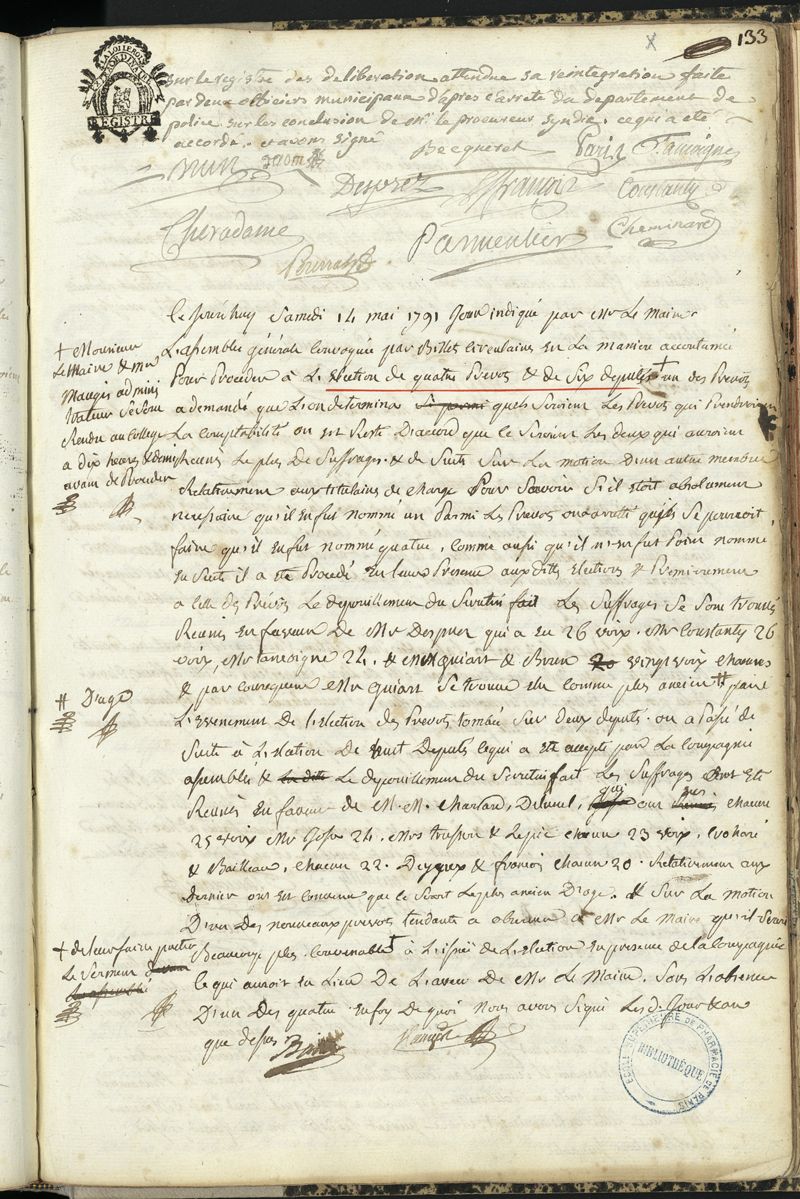 133
LA LOI LE ROI
EXTRAORDINAIRE
REGISTRE
sur le registre des deliberation attendue sa reintegration faite
par deux officiers municipaux d'apres l'arreté du departement de
police sur les conclusion de mr. le procureur syndic. ce qui a été
accordé. et avons signé
Becqueret
Brun
Desprez
françois
Constanty
Cheradame
Parmentier
Cheminard
Ce jourd'huy Samedi 14 mai 1791 Jour indiqué par Mr Le Maire
L'assemblée générale convoquée par Billets circulaires en La maniere accoutumée
Pour Proceder à L'Election de quatre Prevots & de Six deputés + un des Prevots
a demandé que L'on determina quels Seroient Les Prevots qui Prendroient
La Comptabilité on est Resté D'accord que ce Seroient Les deux qui auroient
Le plus de Suffrages. & de Suite Sur La motion D'un autre membre
Relativement aux titulaires de charge Pour Savoir S'il etoit absolument
necessaire qu'il en fut nommé un Parmi Les Prevots on a arreté qu'il Se pourroit
faire qu'il en fut nommé quatre, comme aussi qu'il n'en fut Point nommé
en Suite il a eté Procedé en leur Presence aux dittes Elections & Premierement
a celle des Prévots Le depouillement du Scrutin fait Les Suffrages Se Sont trouvés
Reunis en faveur De Mr Desprez qui a eu 26 voix. Mr Constanty 26
voix, Mr tassigne 24. & Mrs quiart & Brun 20 vingt voix chacuns
& par consequent Mr quiart Se trouve elu comme plus ancien # parce
L'evenement De L'election des Prevots tombée Sur deux deputés. on a Passé de
Suite à L'Election De huit Deputés ce qui a eté accepté par La Compagnie
assemblée & Le depouillement du Scrutin fait Les Suffrages ont Eté
Reunis en faveur de M.M. charlard, Delunel, qui ont eu chacun
25 voix Mr Josse 24. Mrs trusson & Lepic chacun 23 voix,
& Bailleau, chacun 22. Deyeux & francois chacun 20. Relativement aux
dernier on est convenu que ce Seroit Le plus ancien D'age. Sur La motion
D'un des nouveaux prevots tendante a observer a Mr Le Maire qu'il Seroit
Beaucoup plus convenable + à L'issue de L'election en presence de la Compagnie
ce qui auroit eu Lieu De L'aveu de Mr Le Maire, Sans L'absence
D'un des quatre en foy de quoi Nous avons Signé Les d. Jour & an
que dessus
+ Monsieur
Le Maire & mr
Maugis admini
strateur Se Sont
Rendu au College
a dix heures & demy
avant de Proceder
# D'age
+ de leur faire preter
Le Serment
ECOLE SUPERIEURE DE PHARMACIE DE PARIS
BIBLIOTHÈQUE